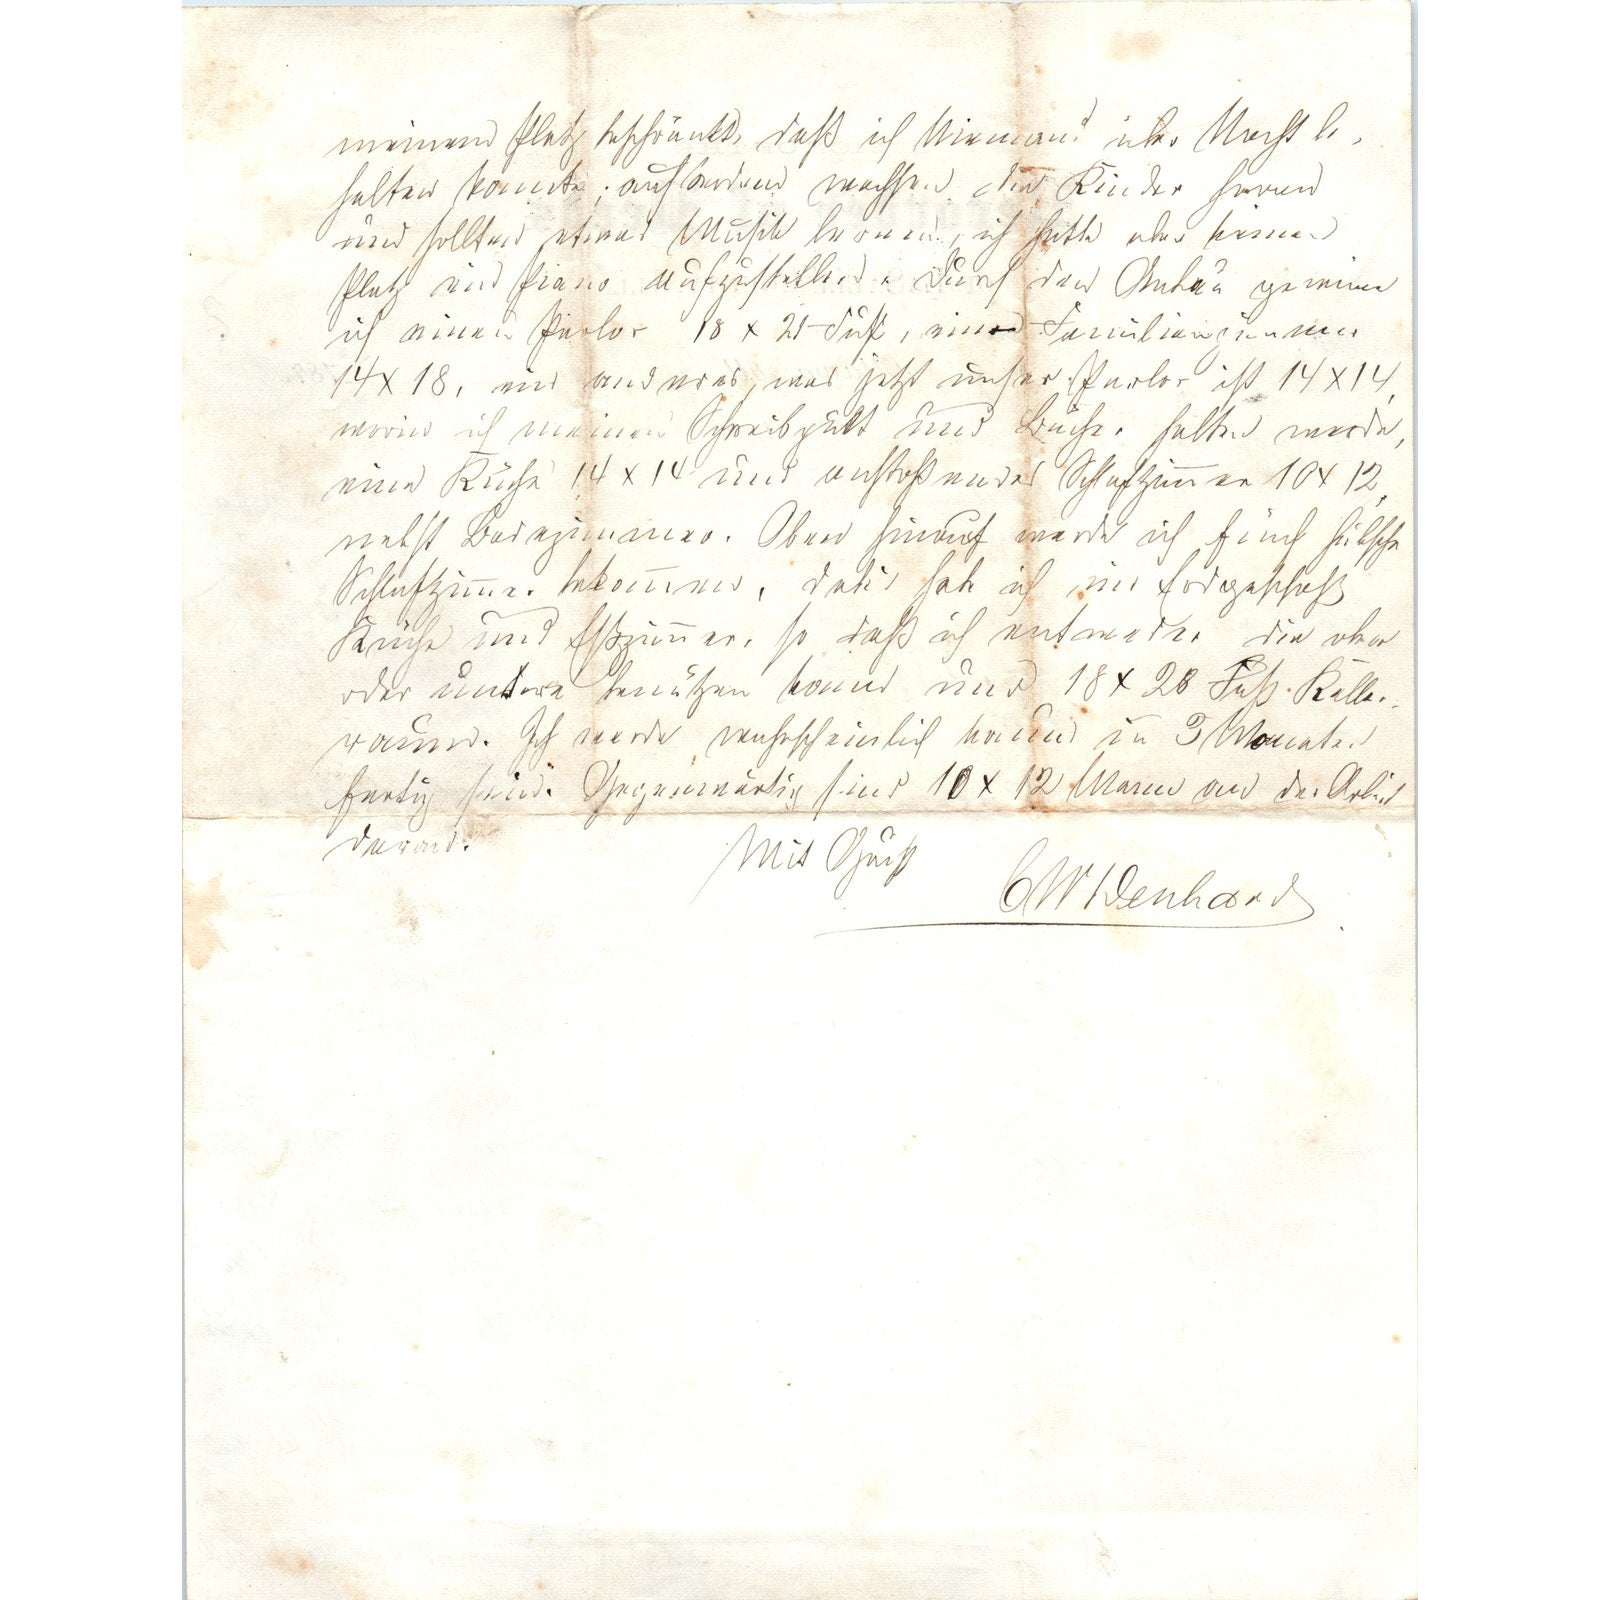 meinem Platz beschränkt, daß ich Niemand über Nacht be-
halten konnte; außerdem wachsen die Kinder heran
und sollten etwas Musik lernen, ich hatte aber keinen
Platz ein Piano aufzustellen. Durch den Anbau gewinne
ich einen Parlor 18 x 21 Fuß, ein Familienzimmer
14 x 18, ein anderes, was jetzt unser Parlor ist 14 x 14,
worin ich meinen Schreibpult und Bücher halten werde,
eine Küche 14 x 14 und anstoßendes Schlafzimmer 10 x 12,
nebst Badezimmer. Oben hinauf werde ich fünf hübsche
Schlafzimmer bekommen, dabei habe ich im Erdgeschoß
Küche und Eßzimmer, so daß ich entweder die obere
oder untere benützen kann und 18 x 28 Fuß Keller-
raum. Ich werde wahrscheinlich kaum in 3 Monaten
fertig sein. Gegenwärtig sind 10 x 12 Mann an der Arbeit
daran.
Mit Gruß
CW Denhard